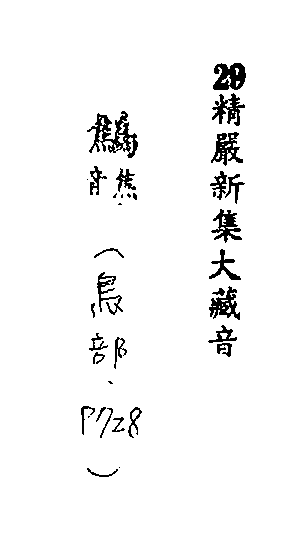 29精嚴新集大藏音
鷦音焦(鳥部·P728)